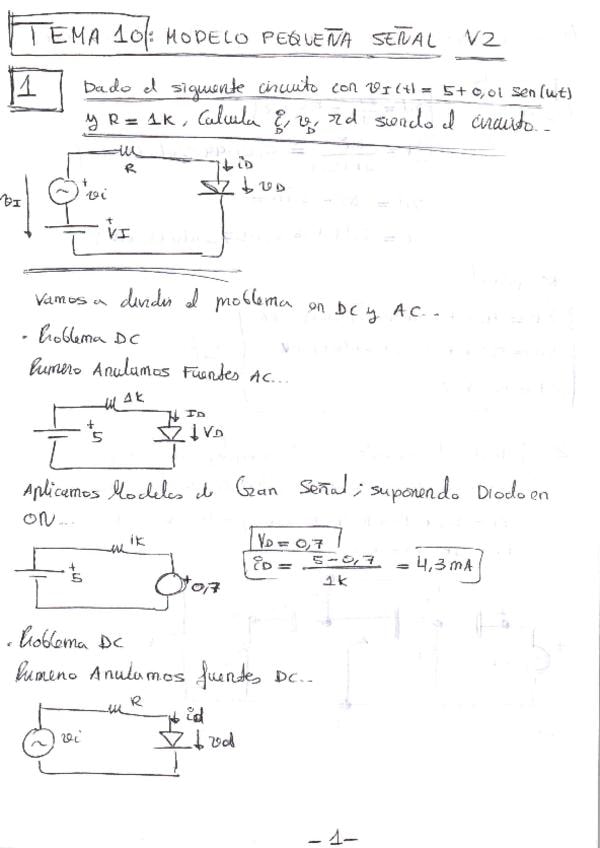 TEMA 10: MODELO PEQUEÑA SEÑAL V2
1 Dado el siguiente circuito con vI(t) = 5 + 0,01 sen(wt)
y R = 1K, Calcula iD, vD, rd siendo el circuito...
R
iD
vD
+
vi
vI
+
VI
Vamos a dividir el problema en DC y AC...
· Problema DC
Primero Anulamos Fuentes AC...
1K
ID
+
5
VD
Aplicamos Modelos de Gran Señal; suponendo Diodo en
ON...
1K
+
5
+
0,7
VD = 0,7
iD = 5-0,7 / 1K = 4,3 mA
· Problema DC
Primeno Anulamos fuentes DC...
R
id
vi
vd
-1-